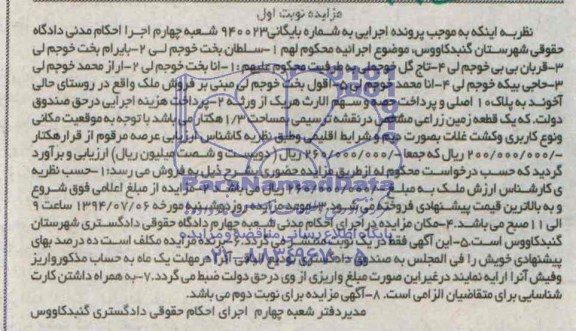 مزایده نوبت اول
نظربه اینکه به موجب پرونده اجرایی به شماره بایگانی ۹۴۰۰۲۳ شعبه چهارم اجرا احکام مدنی دادگاه
حقوقی شهرستان گنبدکاووس، موضوع اجرائیه محکوم لهم ۱-سلطان بخت خوجم لی ۲-بایرام بخت خوجم لی
۳-قربان بی بی خوجم لی ۴-تاج گل خوجملی به طرفیت محکوم علیهم: ۱-انا بخت خوجم لی ۲-اراز محمد خوجم لی
۳-حاجی بیکه خوجم لی ۴-انا محمد خوجم لی ۵-اقول بخت خوجم لی مبنی بر فروش ملک واقع در روستای حالی
آخوند به پلاک ۱۰ اصلی و پرداخت حصه و سهم الارث هریک از ورثه ۲-پرداخت هزینه اجرایی درحق صندوق
دولت، که یک قطعه زمین زراعی مشخص درنقشه ترسیمی بمساحت ۱/۳ هکتار می باشد با توجه به موقعیت مکانی
ونوع کاربری وکشت غلات بصورت دیم و شرایط اقلیمی وطبق نظریه کاشناس ارزیابی عرصه مرقوم از قرار هکتار
۲۰۰/۰۰۰/۰۰۰/- ریال که جمعا ۲۶۰/۰۰۰/۰۰۰/- ریال (دویست و شصت میلیون ریال) ارزیابی و برآورد
گردید که حسب درخواست محکوم له ازطریق مزایده حضوری بشرح ذیل به فروش می رسد: ۱-حسب نظریه
ی کارشناس ارزش ملک به مبلغ ریال می باشد. مزایده از مبلغ اعلامی فوق شروع
و به بالاترین قیمت پیشنهادی فروخته می شود. ۳-موعد مزایده روز دوشنبه مورخه ۱۳۹۴/۰۷/۰۶ ساعت ۹
الی ۱۱ صبح می باشد. ۴-مکان مزایده در اجرای احکام مدنی شعبه چهارم دادگاه حقوقی دادگستری شهرستان
گنبدکاووس است. ۵-این آگهی فقط در یک نوبت منتشر می گردد. ۶-برنده مزایده مکلف است ده درصد بهای
پیشنهادی خویش را فی المجلس به صندوق دادگستری تودیع در مهلت یک ماه به حساب مذکور واریز
وفیش آنرا ارایه نمایند درغیر این صورت مبلغ واریزی از وی درحق دولت ضبط می گردد. ۷-به همراه داشتن کارت
شناسایی برای متقاضیان الزامی است. ۸-آگهی مزایده برای نوبت دوم می باشد.
مدیر دفتر شعبه چهارم اجرای احکام حقوقی دادگستری گنبدکاووس